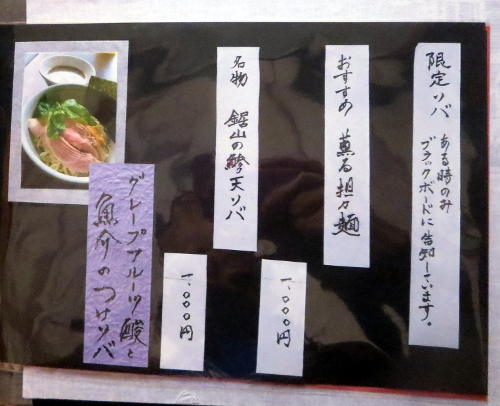 限定ソバ
ある時のみ
ブラックボードに告知しています。
おすすめ 薫る担々麺
一、〇〇〇円
名物 鋸山の鯵天ソバ
一、〇〇〇円
グレープフルーツ酸と
魚介のつけソバ